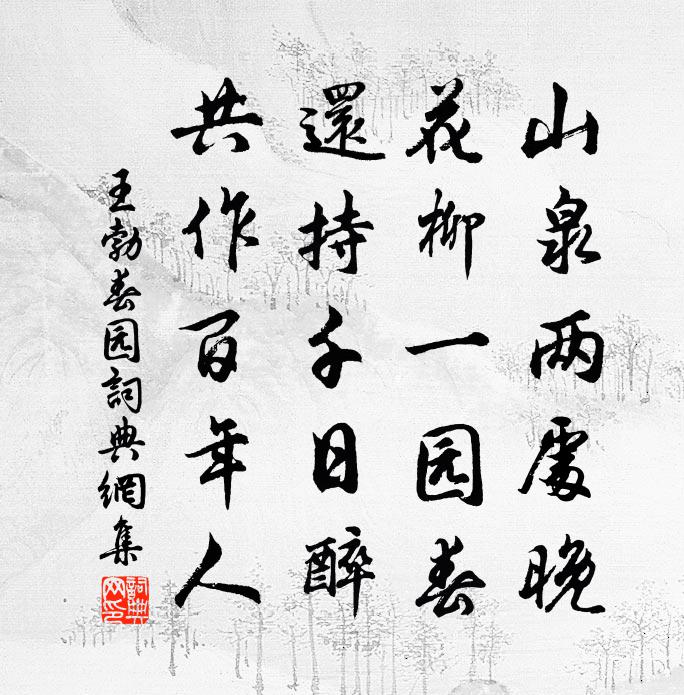 山泉两處晚
花柳一园春
還持千日醉
共作百年人
王勃春园詞典網集
詞典
网印